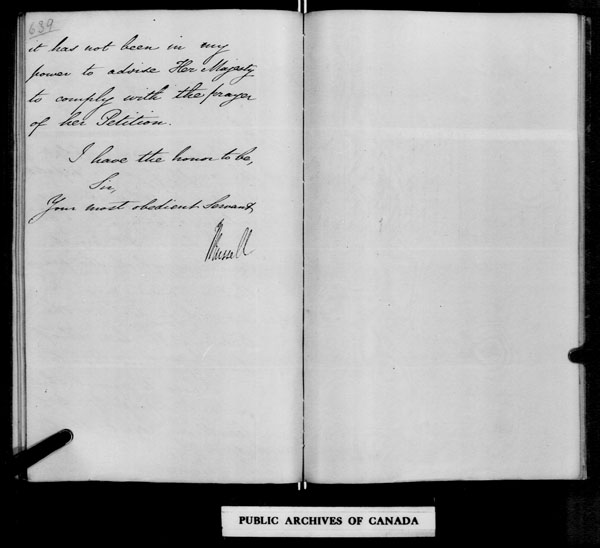 639
it has not been in my
power to advise Her Majesty
to comply with the prayer
of her Petition.
I have the honor to be,
Sir,
Your most obedient Servant,
JRussell
PUBLIC ARCHIVES OF CANADA